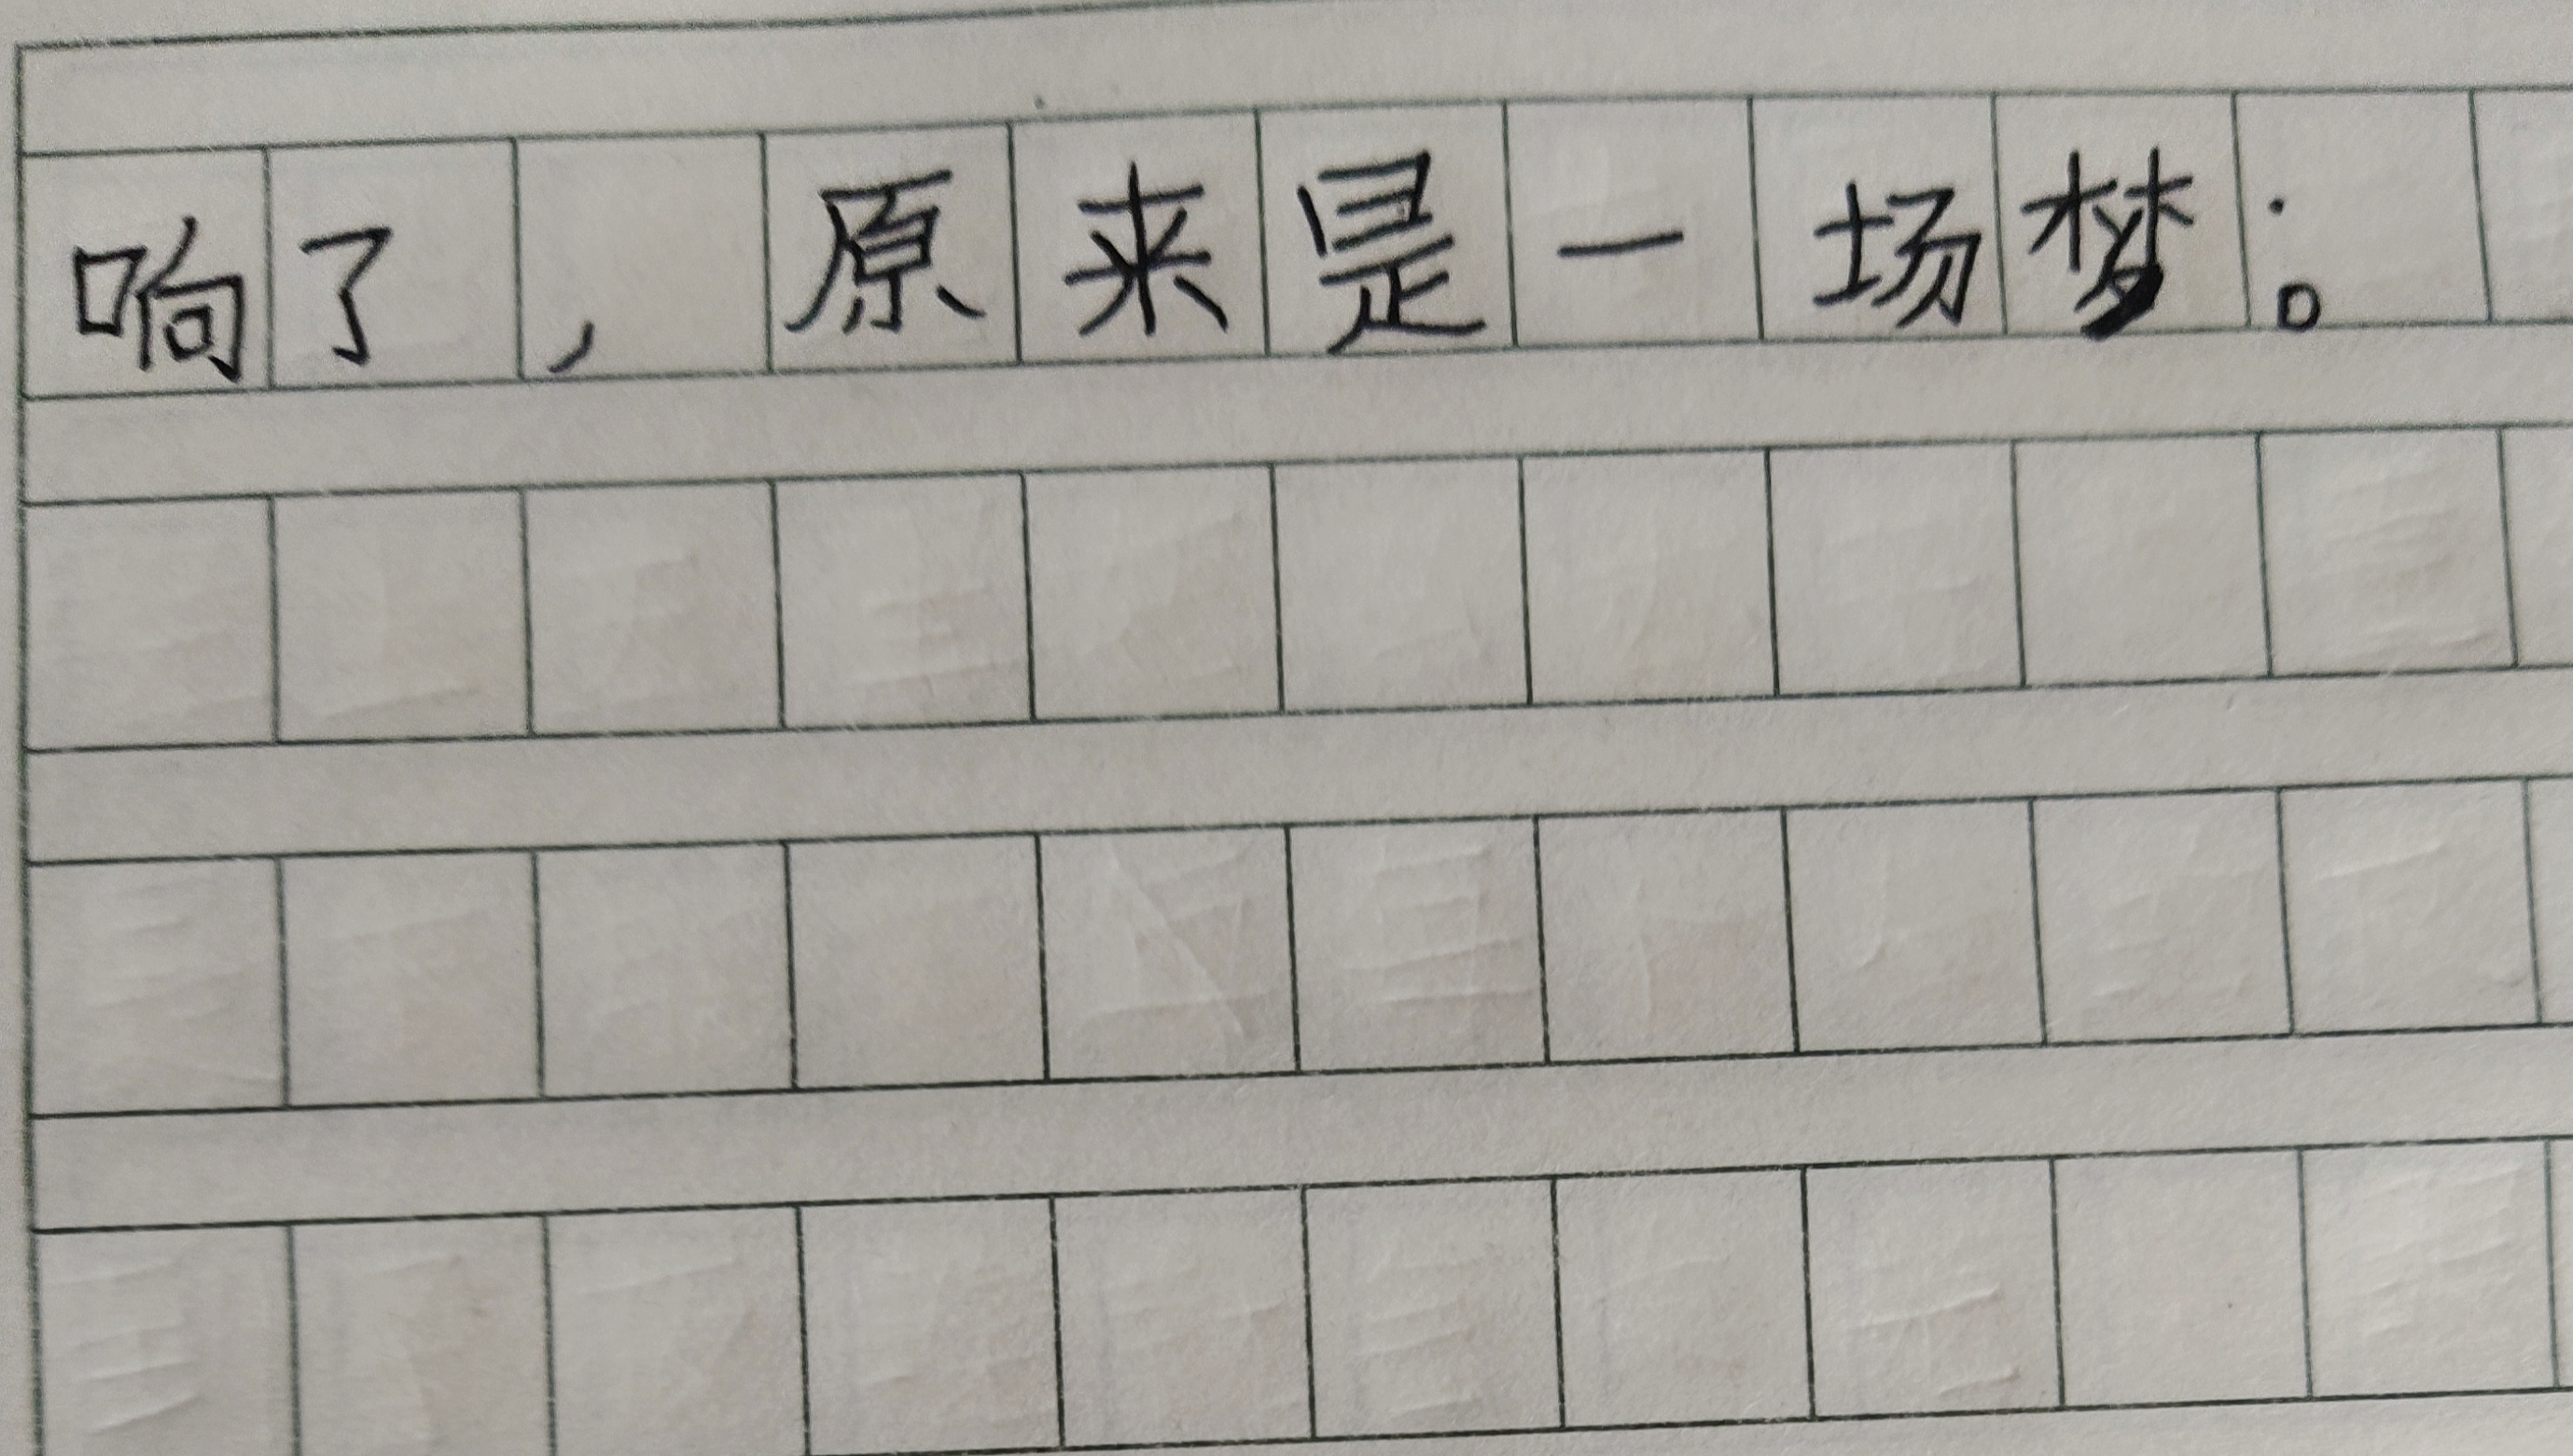 响了，原来是一场梦。